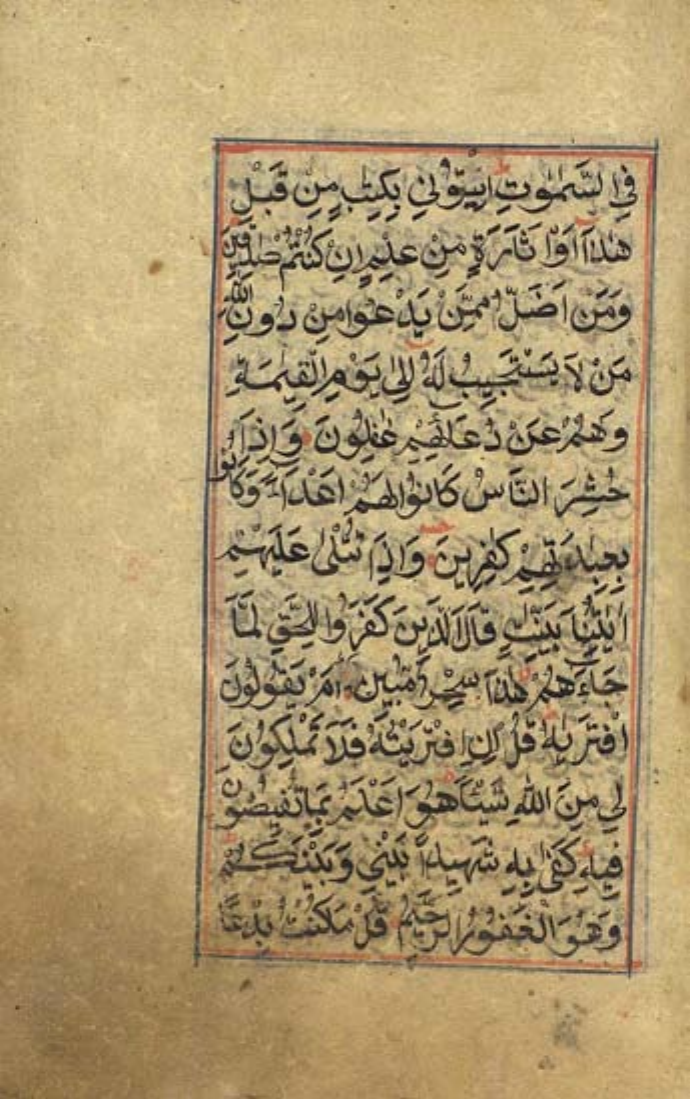 فِي السَّمٰوٰتِ اِیْتُوْنِي بِكِتٰبٍ مِنْ قَبْلِ
هٰذَا اَوْ اَثَارَةٍ مِنْ عِلْمٍ اِنْ كُنْتُمْ صٰدِقِينَ
وَمَنْ اَضَلُّ مِمَّنْ يَدْعُوا مِنْ دُونِ اللّٰهِ
مَنْ لَا يَسْتَجِيبُ لَهُ اِلٰى يَوْمِ الْقِيٰمَةِ
وَهُمْ عَنْ دُعَائِهِمْ غٰفِلُونَ وَاِذَا
حُشِرَ النَّاسُ كَانُوا لَهُمْ اَعْدَاءً وَكَانُوا
بِعِبَادَتِهِمْ كٰفِرِينَ وَاِذَا تُتْلٰى عَلَيْهِمْ
اٰيٰتُنَا بَيِّنٰتٍ قَالَ الَّذِينَ كَفَرُوا لِلْحَقِّ لَمَّا
جَاءَهُمْ هٰذَا سِحْرٌ مُبِينٌ اَمْ يَقُولُونَ
افْتَرٰىهُ قُلْ اِنِ افْتَرَيْتُهُ فَلَا تَمْلِكُونَ
لِي مِنَ اللّٰهِ شَيْئًا هُوَ اَعْلَمُ بِمَا تُفِيضُونَ
فِيهِ كَفٰى بِهِ شَهِيدًا بَيْنِي وَبَيْنَكُمْ
وَهُوَ الْغَفُورُ الرَّحِيمُ قُلْ مَا كُنْتُ بِدْعًا